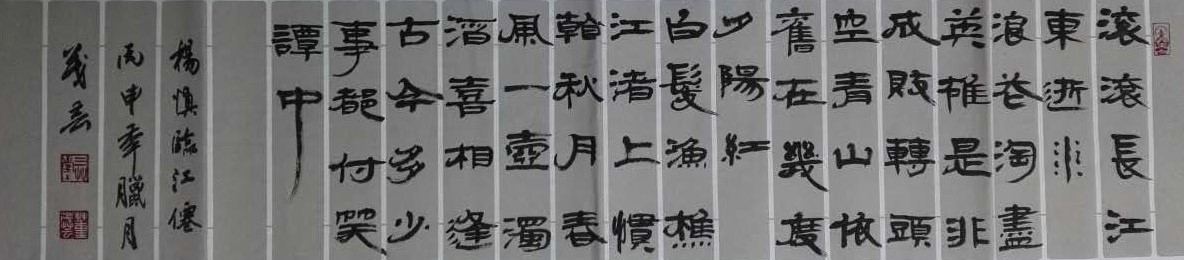 滚滚長江
東逝水
浪花淘盡
英雄是非
成敗轉頭
空青山依
舊在幾度
夕陽紅
白髮漁樵
江渚上慣
看秋月春
風一壺濁
酒喜相逢
古今多少
事都付笑
譚中
楊慎臨江僊
丙申年臘月